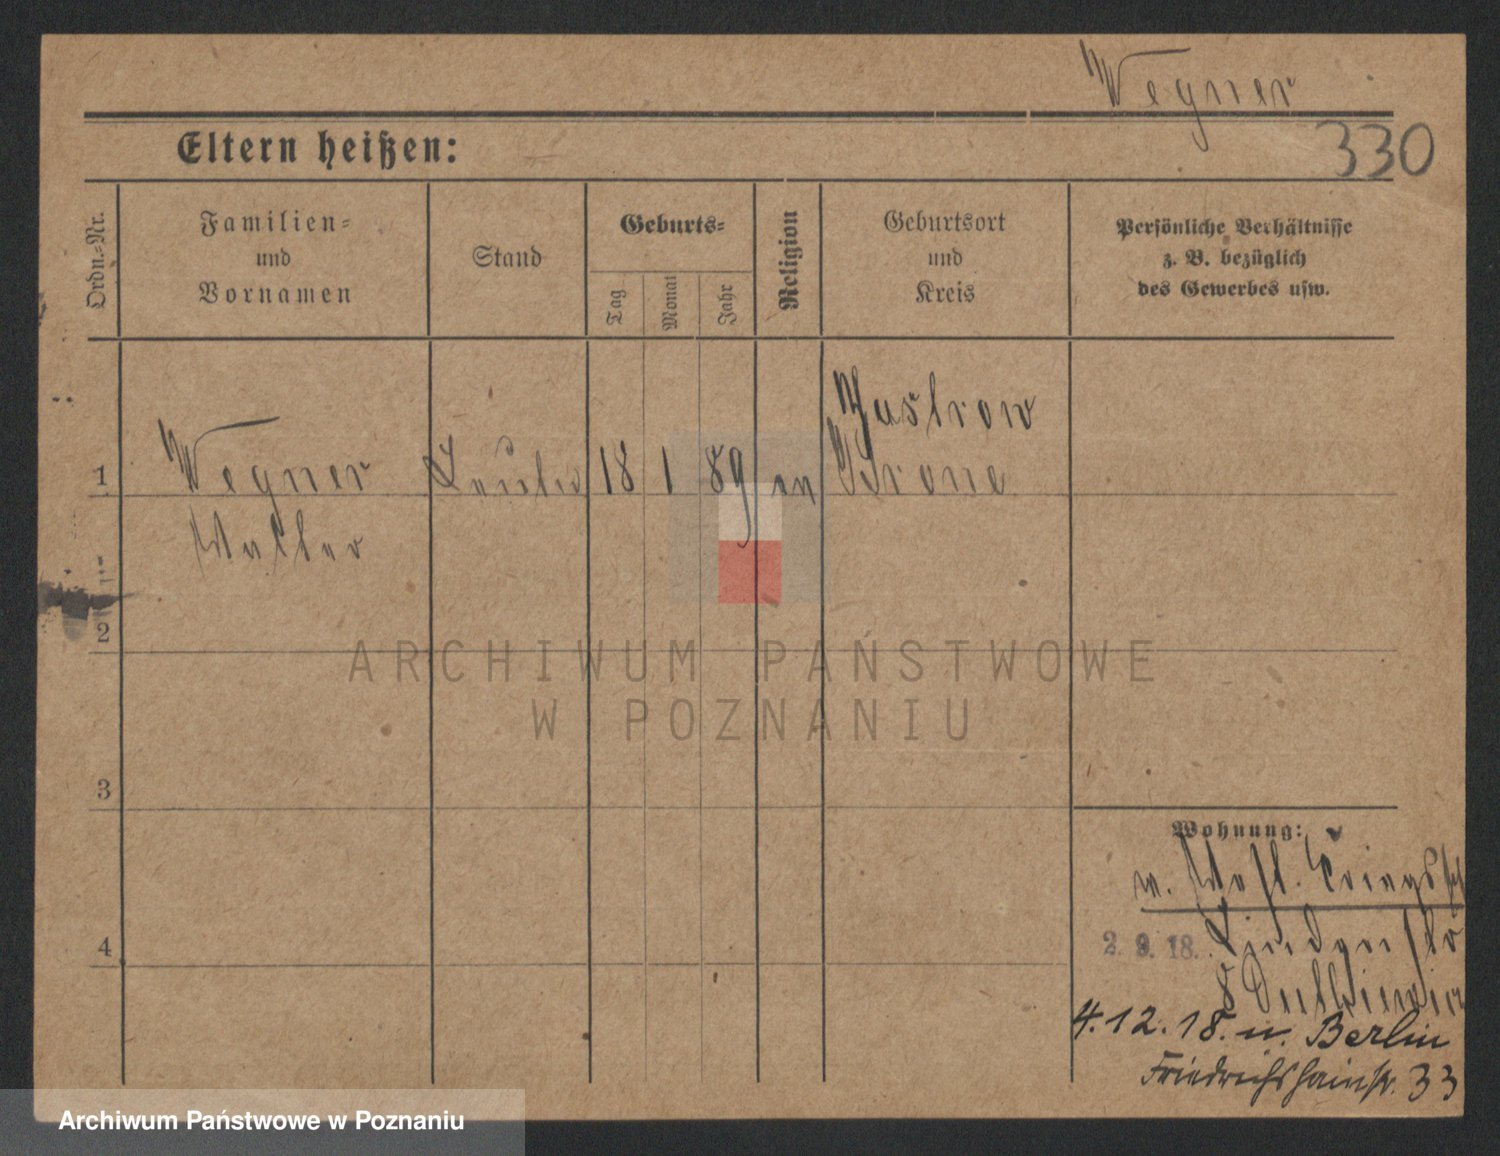 Wegner
330
Eltern heißen:
Ordn.-Nr.
Familien-
und
Vornamen
Stand
Geburts-
Tag
Monat
Jahr
Religion
Geburtsort
und
Kreis
Persönliche Verhältnisse
z. B. bezüglich
des Gewerbes usw.
Jastrow
1 Wegner 18 1 89 Krone
Walter
2
ARCHIWUM PAŃSTWOWE
W POZNANIU
3
Wohnung:
4
2. 9. 18. Lindenstr
8
4.12.18. n. Berlin
Friedrichshainstr. 33
Archiwum Państwowe w Poznaniu